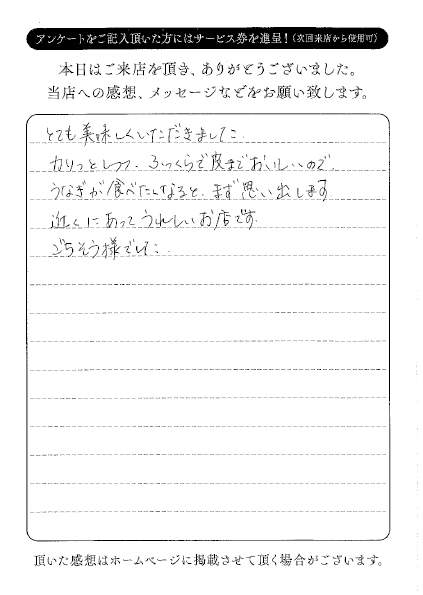 アンケートをご記入頂いた方にはサービス券を進呈！(次回来店から使用可)
本日はご来店を頂き、ありがとうございました。
当店への感想、メッセージなどをお願い致します。
とても美味しくいただきました．
カリっとしつつ、ふっくらで皮までおいしいので、
うなぎが食べたくなると、まず思い出します
近くにあってうれしいお店です．
ごちそう様でした．
頂いた感想はホームページに掲載させて頂く場合がございます。